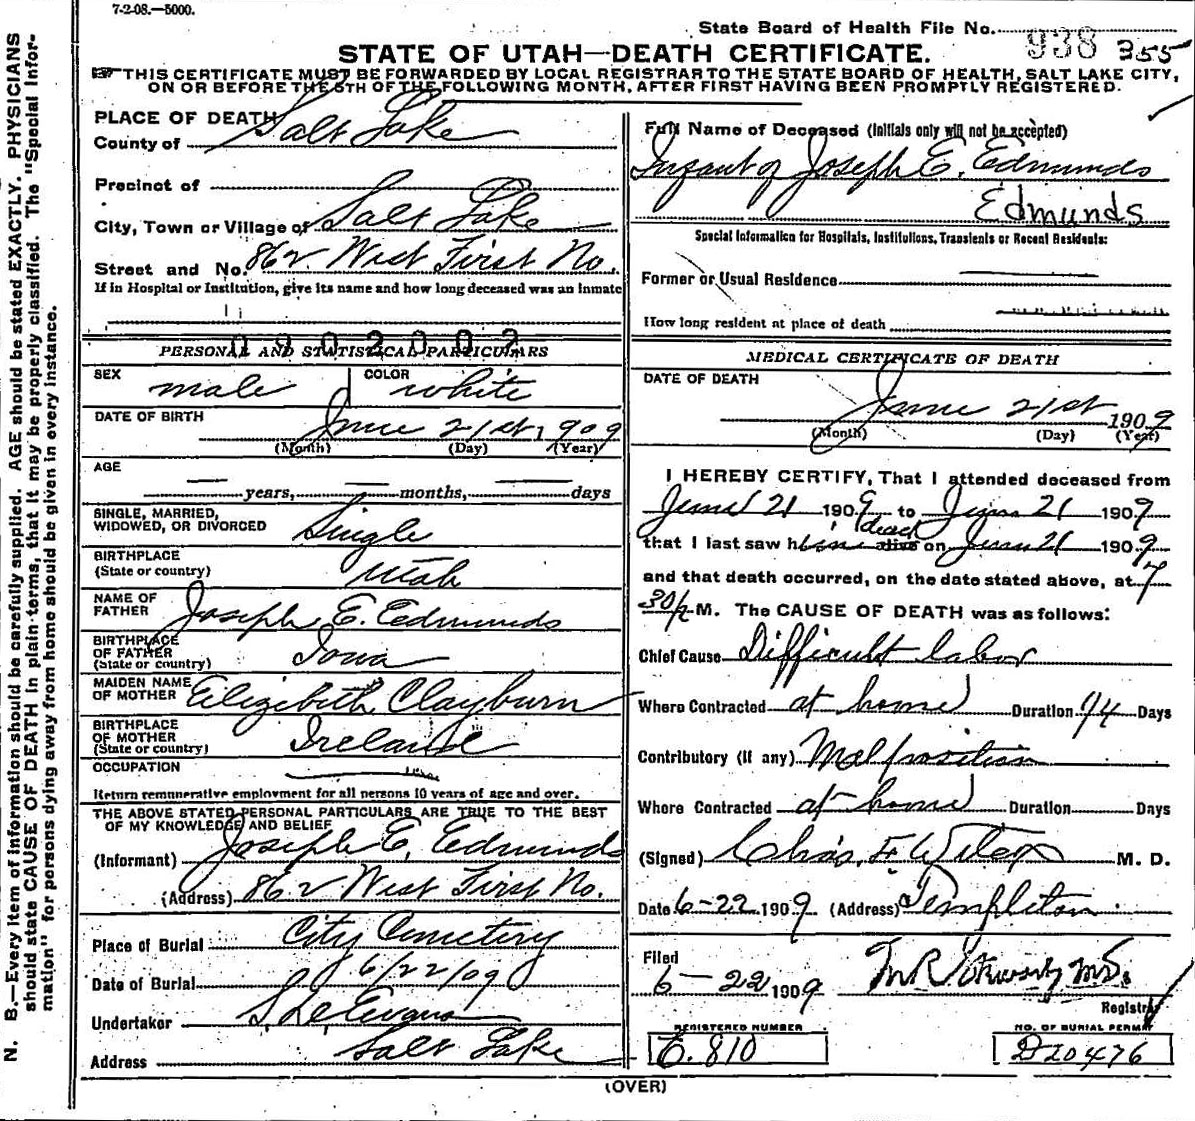 7-2-08.—5000.
State Board of Health File No. 938 355
STATE OF UTAH—DEATH CERTIFICATE.
☞ THIS CERTIFICATE MUST BE FORWARDED BY LOCAL REGISTRAR TO THE STATE BOARD OF HEALTH, SALT LAKE CITY,
ON OR BEFORE THE 5TH OF THE FOLLOWING MONTH, AFTER FIRST HAVING BEEN PROMPTLY REGISTERED.
PLACE OF DEATH
County of Salt Lake
Precinct of
City, Town or Village of Salt Lake
Street and No. 862 West First No.
If in Hospital or Institution, give its name and how long deceased was an inmate
0902002
PERSONAL AND STATISTICAL PARTICULARS
SEX male COLOR white
DATE OF BIRTH June 21st, 1909
(Month) (Day) (Year)
AGE
— years, — months, — days
SINGLE, MARRIED,
WIDOWED, OR DIVORCED Single
BIRTHPLACE
(State or country) Utah
NAME OF
FATHER Joseph E. Edmunds
BIRTHPLACE
OF FATHER
(State or country) Iowa
MAIDEN NAME
OF MOTHER Elizibeth Clayburn
BIRTHPLACE
OF MOTHER
(State or country) Ireland
OCCUPATION
Return remunerative employment for all persons 10 years of age and over.
THE ABOVE STATED PERSONAL PARTICULARS ARE TRUE TO THE BEST
OF MY KNOWLEDGE AND BELIEF
(Informant) Joseph E. Edmunds
(Address) 862 West First No.
Place of Burial City Cemetery
Date of Burial 6/22/09
Undertaker Evans
Address Salt Lake
Full Name of Deceased (Initials only will not be accepted)
Infant of Joseph E. Edmunds
Edmunds
Special Information for Hospitals, Institutions, Transients or Recent Residents:
Former or Usual Residence
How long resident at place of death
MEDICAL CERTIFICATE OF DEATH
DATE OF DEATH
June 21st 1909
(Month) (Day) (Year)
I HEREBY CERTIFY, That I attended deceased from
June 21 1909 to June 21 1909
dead
that I last saw him alive on June 21 1909
and that death occurred, on the date stated above, at 7
30/P M. The CAUSE OF DEATH was as follows:
Chief Cause Difficult labor
Where Contracted at home Duration 1/4 Days
Contributory (if any) Malposition
Where Contracted at home Duration Days
(Signed) Chas. F. M. D.
Date 6-22 1909 (Address) Templeton
Filed
6-22 1909 M.D.
Registrar
REGISTERED NUMBER
E. 810
NO. OF BURIAL PERMIT
D20476
(OVER)
N. B.—Every item of information should be carefully supplied. AGE should be stated EXACTLY. PHYSICIANS
should state CAUSE OF DEATH in plain terms, that it may be properly classified. The "Special Infor-
mation" for persons dying away from home should be given in every instance.